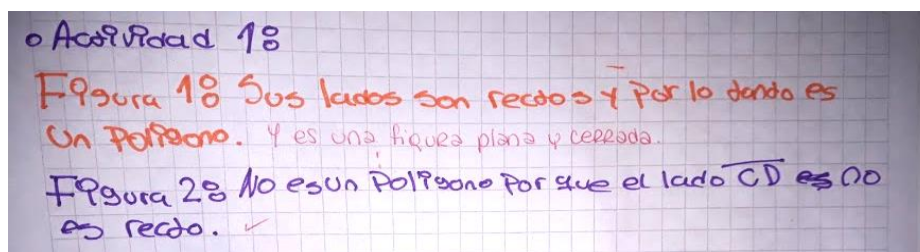 o Actividad 1:
Figura 1: Sus lados son rectos y por lo dando es
un poligono. Y es una figura plana y cerrada.
Figura 2: No es un poligono por que el lado CD no
es recto.